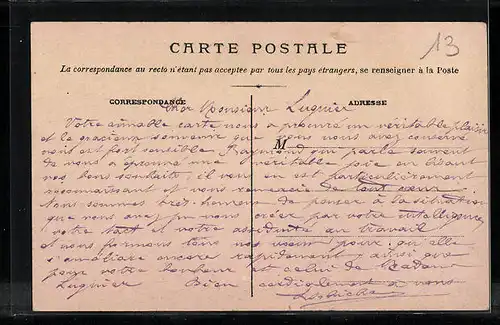 13
CARTE POSTALE
La correspondance au recto n'étant pas acceptée par tous les pays étrangers, se renseigner à la Poste
CORRESPONDANCE ADRESSE
Cher Monsieur Lugnier
Votre aimable carte nous a procuré un véritable plaisir
et le gracieux souvenir que vous nous avez conservé
nous est fort sensible Raymond qui parle souvent
M
de vous a éprouvé une véritable joie en lisant
vos bons souhaits, il vous en est particulièrement
reconnaissant et vous remercie de tout cœur
Nous sommes très heureux de penser à la situation
que vous avez pu vous créer par votre intelligence
votre tact et votre assiduité au travail
et nous formons tous nos vœux pour qu'elle
s'améliore encore rapidement ainsi que
pour votre bonheur et celui de Madame
Lugnier Bien cordialement à vous